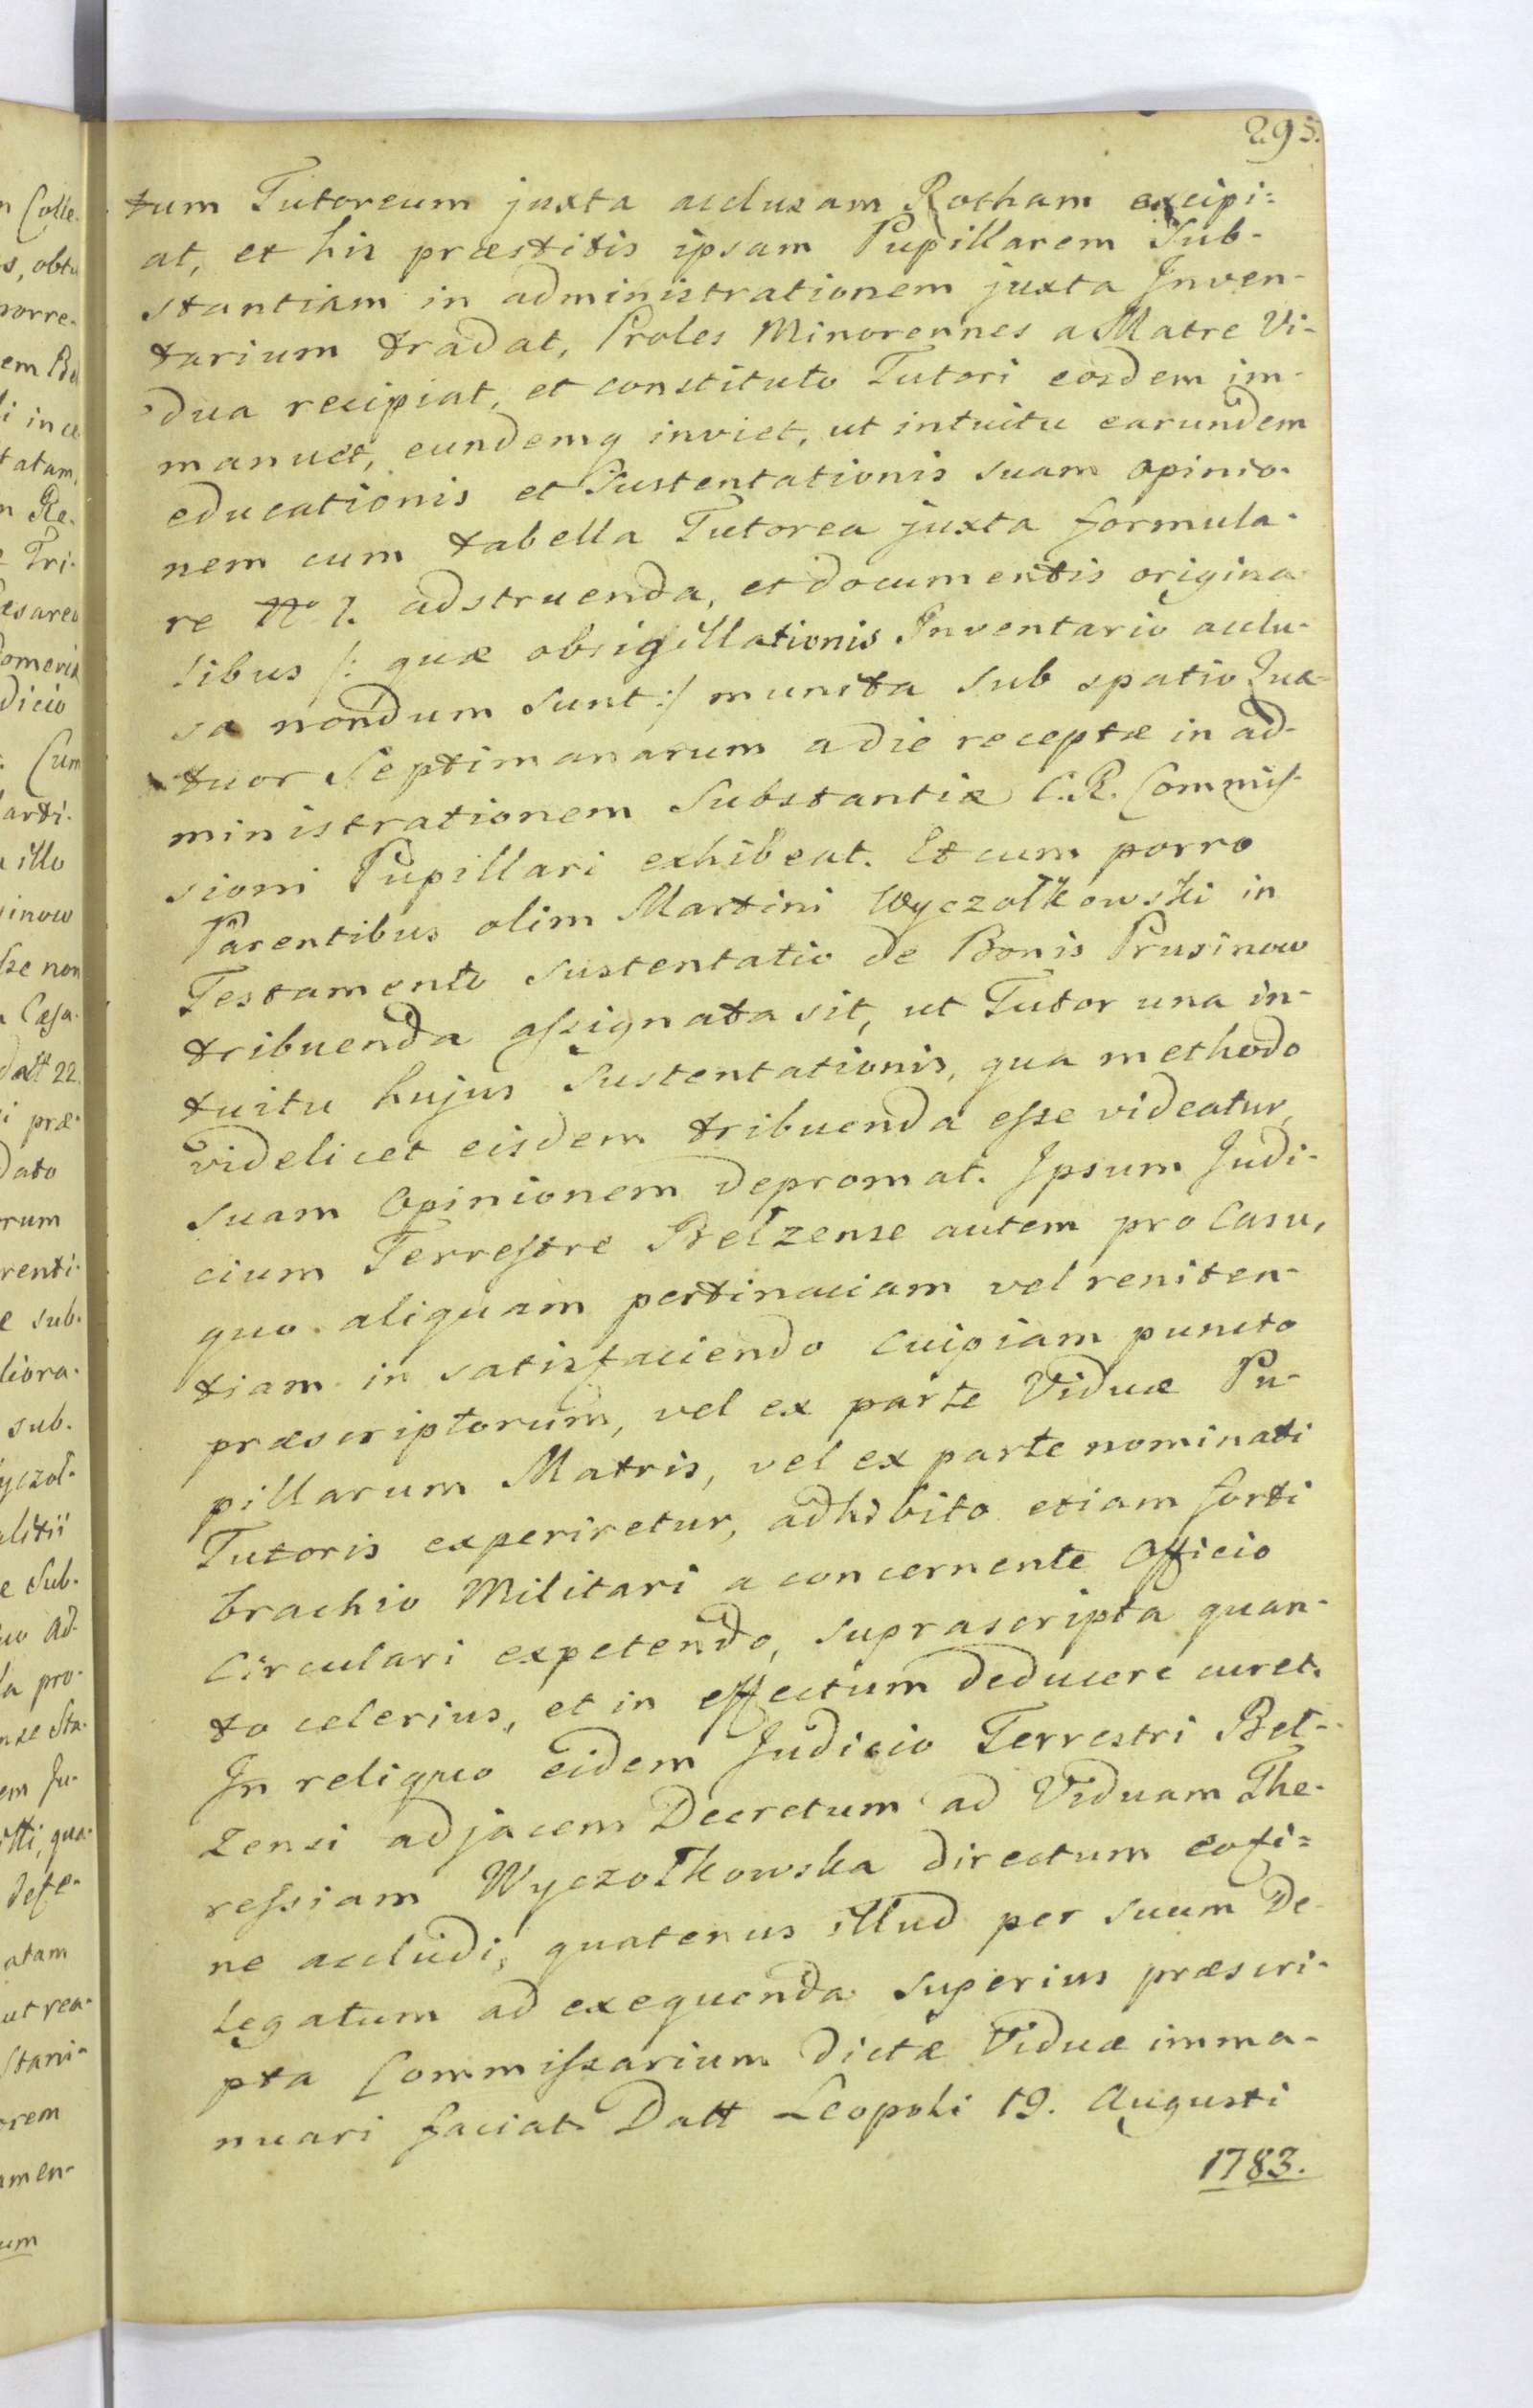 295.
tum Tutoreum juxta acclusam Rotham excipi=
at, et his præstitis ipsam Pupillarem Sub-
stantiam in administrationem juxta Inven-
tarium tradat, Proles Minorennes a Matre Vi-
dua recipiat, et constituto Tutori eosdem im-
manuet, eundemq inviet, ut intuitu earundem
educationis et Sustentationis suam opinio-
nem cum tabella Tutorea juxta formula-
re No 7. adstruenda, et documentis origina-
libus /: quæ obsigillationis Inventario acclu-
sa nondum sunt :/ munita sub spatio Qua-
tuor Septimanarum a die receptæ in ad-
ministrationem Substantiæ C.R. Commis-
sioni Pupillari exhibeat. Et cum porro
Parentibus olim Martini Wyczołkowski in
Testamento sustentatio de Bonis Prusinow
tribuenda assignata sit, ut Tutor una in-
tuitu hujus Sustentationis, qua methodo
videlicet eisdem tribuenda esse videatur,
suam Opinionem depromat. Ipsum Judi-
cium Terrestre Belzense autem pro Casu,
quo aliquam pertinaciam vel reniten-
tiam in satisfaciendo cuipiam puncto
præscriptorum, vel ex parte Viduæ Pu-
pillarum Matris, vel ex parte nominati
Tutoris experiretur, adhibito etiam forti
brachio Militari a concernente Officio
Circulari expetendo, suprascripta quan-
to celerius, et in effectum deducere curet.
In reliquo eidem Judicio Terrestri Bel-
zensi adjacem Decretum ad Viduam The-
ressiam Wyczołkowska directum eofi=
ne accludi, quatenus illud per suum De-
legatum ad exequenda superius præscri-
pta Commissarium dictæ Viduæ imma-
nuari faciat. Datt Leopoli 19. Augusti
1783.